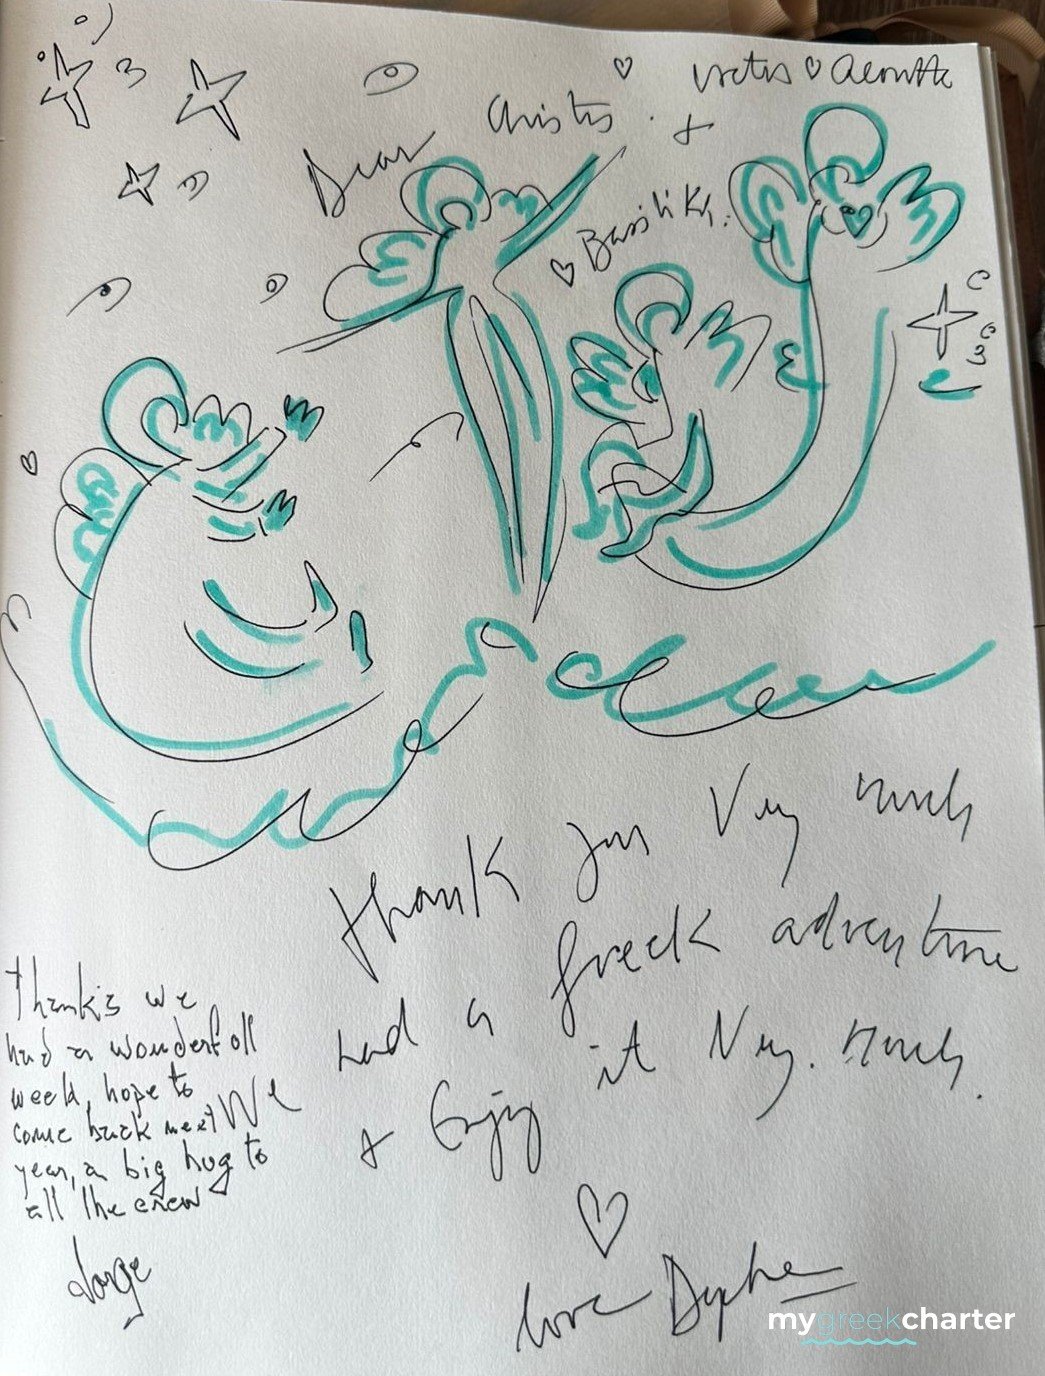 Dear Christos. +
♡ Basiliki.
Thank you Very much
had a greek adventure
+ Enjoy it Very. much.
We
♡
love Daphne
Thanks we
had a wonderfoll
week, hope to
come back next
year, a big hug to
all the crew
Jorge
mygreekcharter